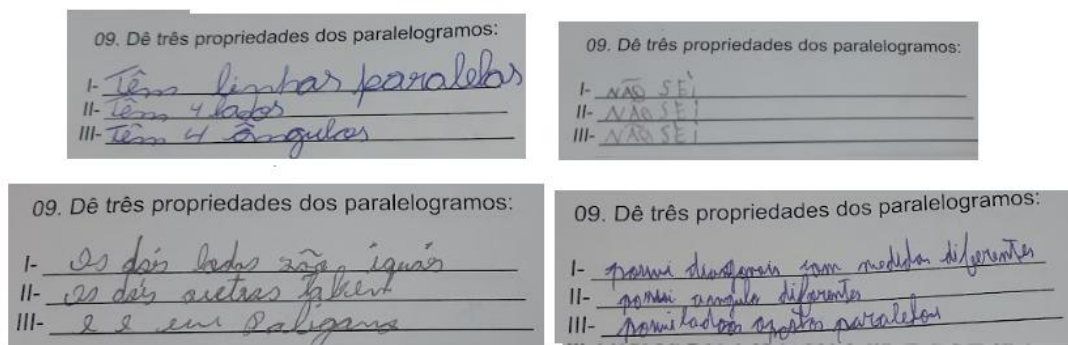 09. Dê três propriedades dos paralelogramos:
I- Têm linhas paralelas
II- Têm 4 lados
III- Têm 4 ângulos
09. Dê três propriedades dos paralelogramos:
I- NÃO SEI
II- NÃO SEI
III- NÃO SEI
09. Dê três propriedades dos paralelogramos:
I- Os dois lados são iguais
II- os dois
III- e e um Poligano
09. Dê três propriedades dos paralelogramos:
I- possui diagonais com medidas diferentes
II- possui angulos diferentes
III- possui lados opostos paralelos